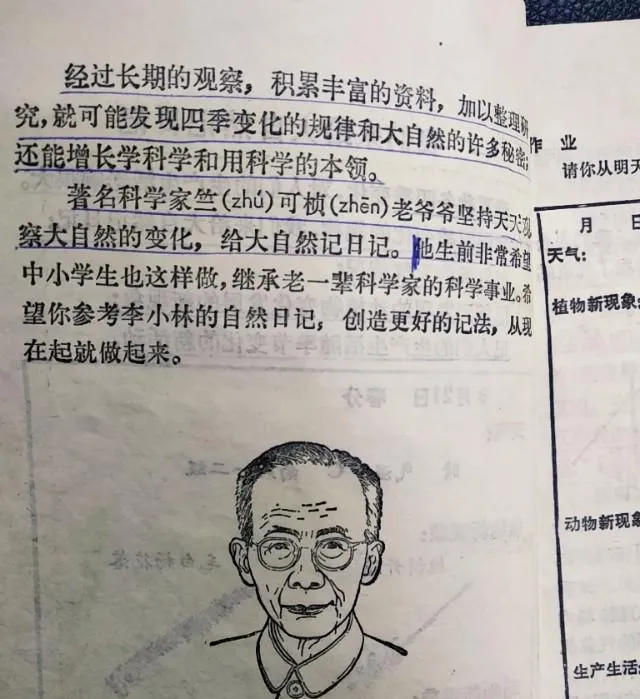 经过长期的观察，积累丰富的资料，加以整理研
究，就可能发现四季变化的规律和大自然的许多秘密，
还能增长学科学和用科学的本领。
著名科学家竺(zhú)可桢(zhēn)老爷爷坚持天天观
察大自然的变化，给大自然记日记。他生前非常希望
中小学生也这样做，继承老一辈科学家的科学事业。希
望你参考李小林的自然日记，创造更好的记法，从现
在起就做起来。
作 业
请你从明天
月 日
天气：
植物新现象
动物新现象
生产生活